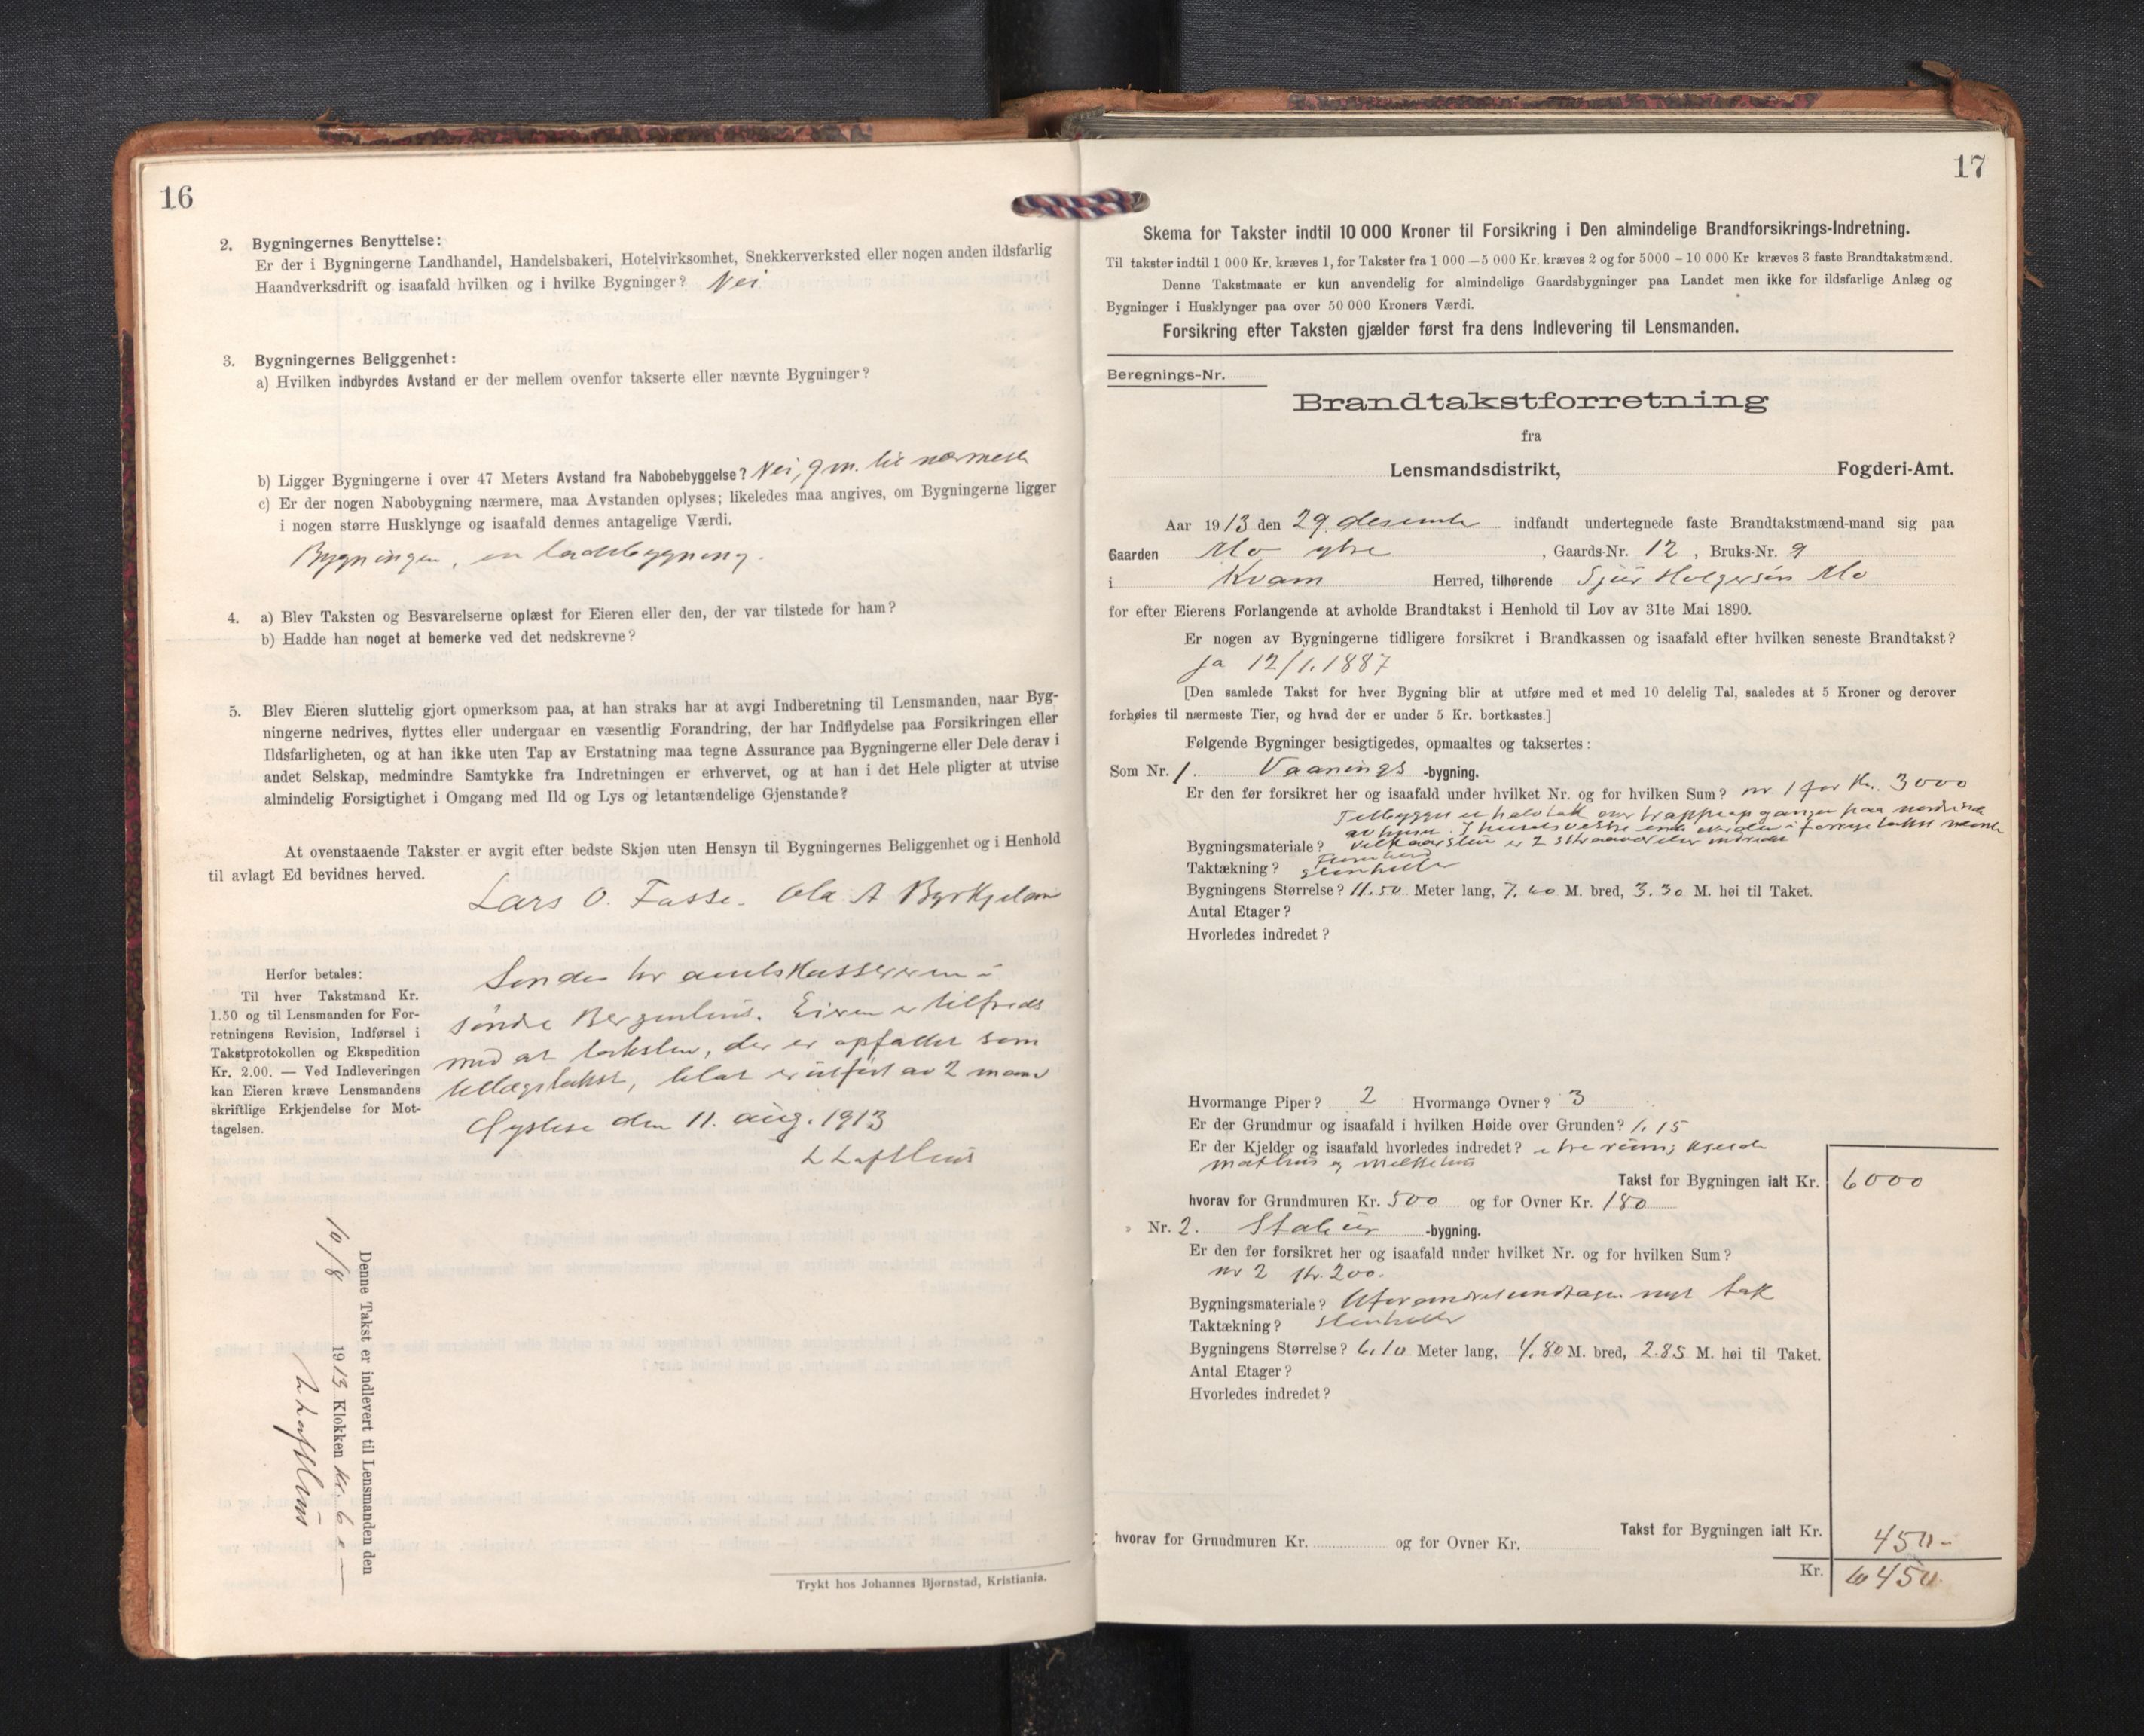 16
2. Bygningernes Benyttelse:
Er der i Bygningerne Landhandel, Handelsbakeri, Hotelvirksomhet, Snekkerverksted eller nogen anden ildsfarlig
Haandverksdrift og isaafald hvilken og i hvilke Bygninger? Nei
3. Bygningernes Beliggenhet:
a) Hvilken indbyrdes Avstand er der mellem ovenfor takserte eller nævnte Bygninger?
b) Ligger Bygningerne i over 47 Meters Avstand fra Nabobebyggelse? Nei, 9 m. til nærmeste
c) Er der nogen Nabobygning nærmere, maa Avstanden oplyses; likeledes maa angives, om Bygningerne ligger
i nogen større Husklynge og isaafald dennes antagelige Værdi.
Bygningen, en ladebygning.
4. a) Blev Taksten og Besvarelserne oplæst for Eieren eller den, der var tilstede for ham?
b) Hadde han noget at bemerke ved det nedskrevne?
5. Blev Eieren sluttelig gjort opmerksom paa, at han straks har at avgi Indberetning til Lensmanden, naar Byg-
ningerne nedrives, flyttes eller undergaar en væsentlig Forandring, der har Indflydelse paa Forsikringen eller
Ildsfarligheten, og at han ikke uten Tap av Erstatning maa tegne Assurance paa Bygningerne eller Dele derav i
andet Selskap, medmindre Samtykke fra Indretningen er erhvervet, og at han i det Hele pligter at utvise
almindelig Forsigtighet i Omgang med Ild og Lys og letantændelige Gjenstande?
At ovenstaaende Takster er avgit efter bedste Skjøn uten Hensyn til Bygningernes Beliggenhet og i Henhold
til avlagt Ed bevidnes herved.
Lars O. Fosse. Ola A Byrkjeland
Herfor betales:
Til hver Takstmand Kr.
1.50 og til Lensmanden for For-
retningens Revision, Indførsel i
Takstprotokollen og Ekspedition
Kr. 2.00. — Ved Indleveringen
kan Eieren kræve Lensmandens
skriftlige Erkjendelse for Mot-
tagelsen.
Sendes hr amtskassereren i
søndre Bergenhus. Eieren er tilfreds
med at taksten, der er opfattet som
tillægstakst, blot er utført av 2 mænd
Øystese den 11. aug. 1913
L Lofthus
Denne Takst er indlevert til Lensmanden den
10/8 1913 Klokken
L Lofthus
Trykt hos Johannes Bjørnstad, Kristiania.
17
Skema for Takster indtil 10 000 Kroner til Forsikring i Den almindelige Brandforsikrings-Indretning.
Til takster indtil 1 000 Kr. kræves 1, for Takster fra 1 000 — 5 000 Kr. kræves 2 og for 5000 – 10 000 Kr kræves 3 faste Brandtakstmænd.
Denne Takstmaate er kun anvendelig for almindelige Gaardsbygninger paa Landet men ikke for ildsfarlige Anlæg og
Bygninger i Husklynger paa over 50 000 Kroners Værdi.
Forsikring efter Taksten gjælder først fra dens Indlevering til Lensmanden.
Beregnings-Nr.
Brandtakstforretning
fra
Lensmandsdistrikt, Fogderi-Amt.
Aar 1913 den 29. desember indfandt undertegnede faste Brandtakstmænd-mand sig paa
Gaarden Mo ytre, Gaards-Nr. 12, Bruks-Nr. 9
i Kvam Herred, tilhørende Sjur Holgersen Mo
for efter Eierens Forlangende at avholde Brandtakst i Henhold til Lov av 31te Mai 1890.
Er nogen av Bygningerne tidligere forsikret i Brandkassen og isaafald efter hvilken seneste Brandtakst?
Ja 12/1. 1887
[Den samlede Takst for hver Bygning blir at utføre med et med 10 delelig Tal, saaledes at 5 Kroner og derover
forhøies til nærmeste Tier, og hvad der er under 5 Kr. bortkastes.]
Følgende Bygninger besigtigedes, opmaaltes og taksertes:
Som Nr. 1. Vaanings -bygning.
Er den før forsikret her og isaafald under hvilket Nr. og for hvilken Sum? nr 1 for Kr. 3000
Tilbygget et halvtak over trappeopgangen paa nordsiden
av huset. I husets vestre ende
Bygningsmateriale? er 2
Taktækning? Stenheller
Bygningens Størrelse? 11.50 Meter lang, 7.40 M. bred, 3.30 M. høi til Taket.
Antal Etager?
Hvorledes indredet?
Hvormange Piper? 2 Hvormange Ovner? 3
Er der Grundmur og isaafald i hvilken Høide over Grunden? 1.15
Er der Kjelder og isaafald hvorledes indredet? i tre rum; kjelder
mathus og melkehus
Takst for Bygningen ialt Kr. 6000
hvorav for Grundmuren Kr. 500 og for Ovner Kr. 180
Nr. 2. Stabur -bygning.
Er den før forsikret her og isaafald under hvilket Nr. og for hvilken Sum?
nr 2 Kr. 200.
Bygningsmateriale? Uforandret undtagen nyt tak
Taktækning? Stenheller
Bygningens Størrelse? 6.10 Meter lang, 4.80 M. bred, 2.85 M. høi til Taket.
Antal Etager?
Hvorledes indredet?
Takst for Bygningen ialt Kr. 450 -
hvorav for Grundmuren Kr. og for Ovner Kr.
Kr. 6450.